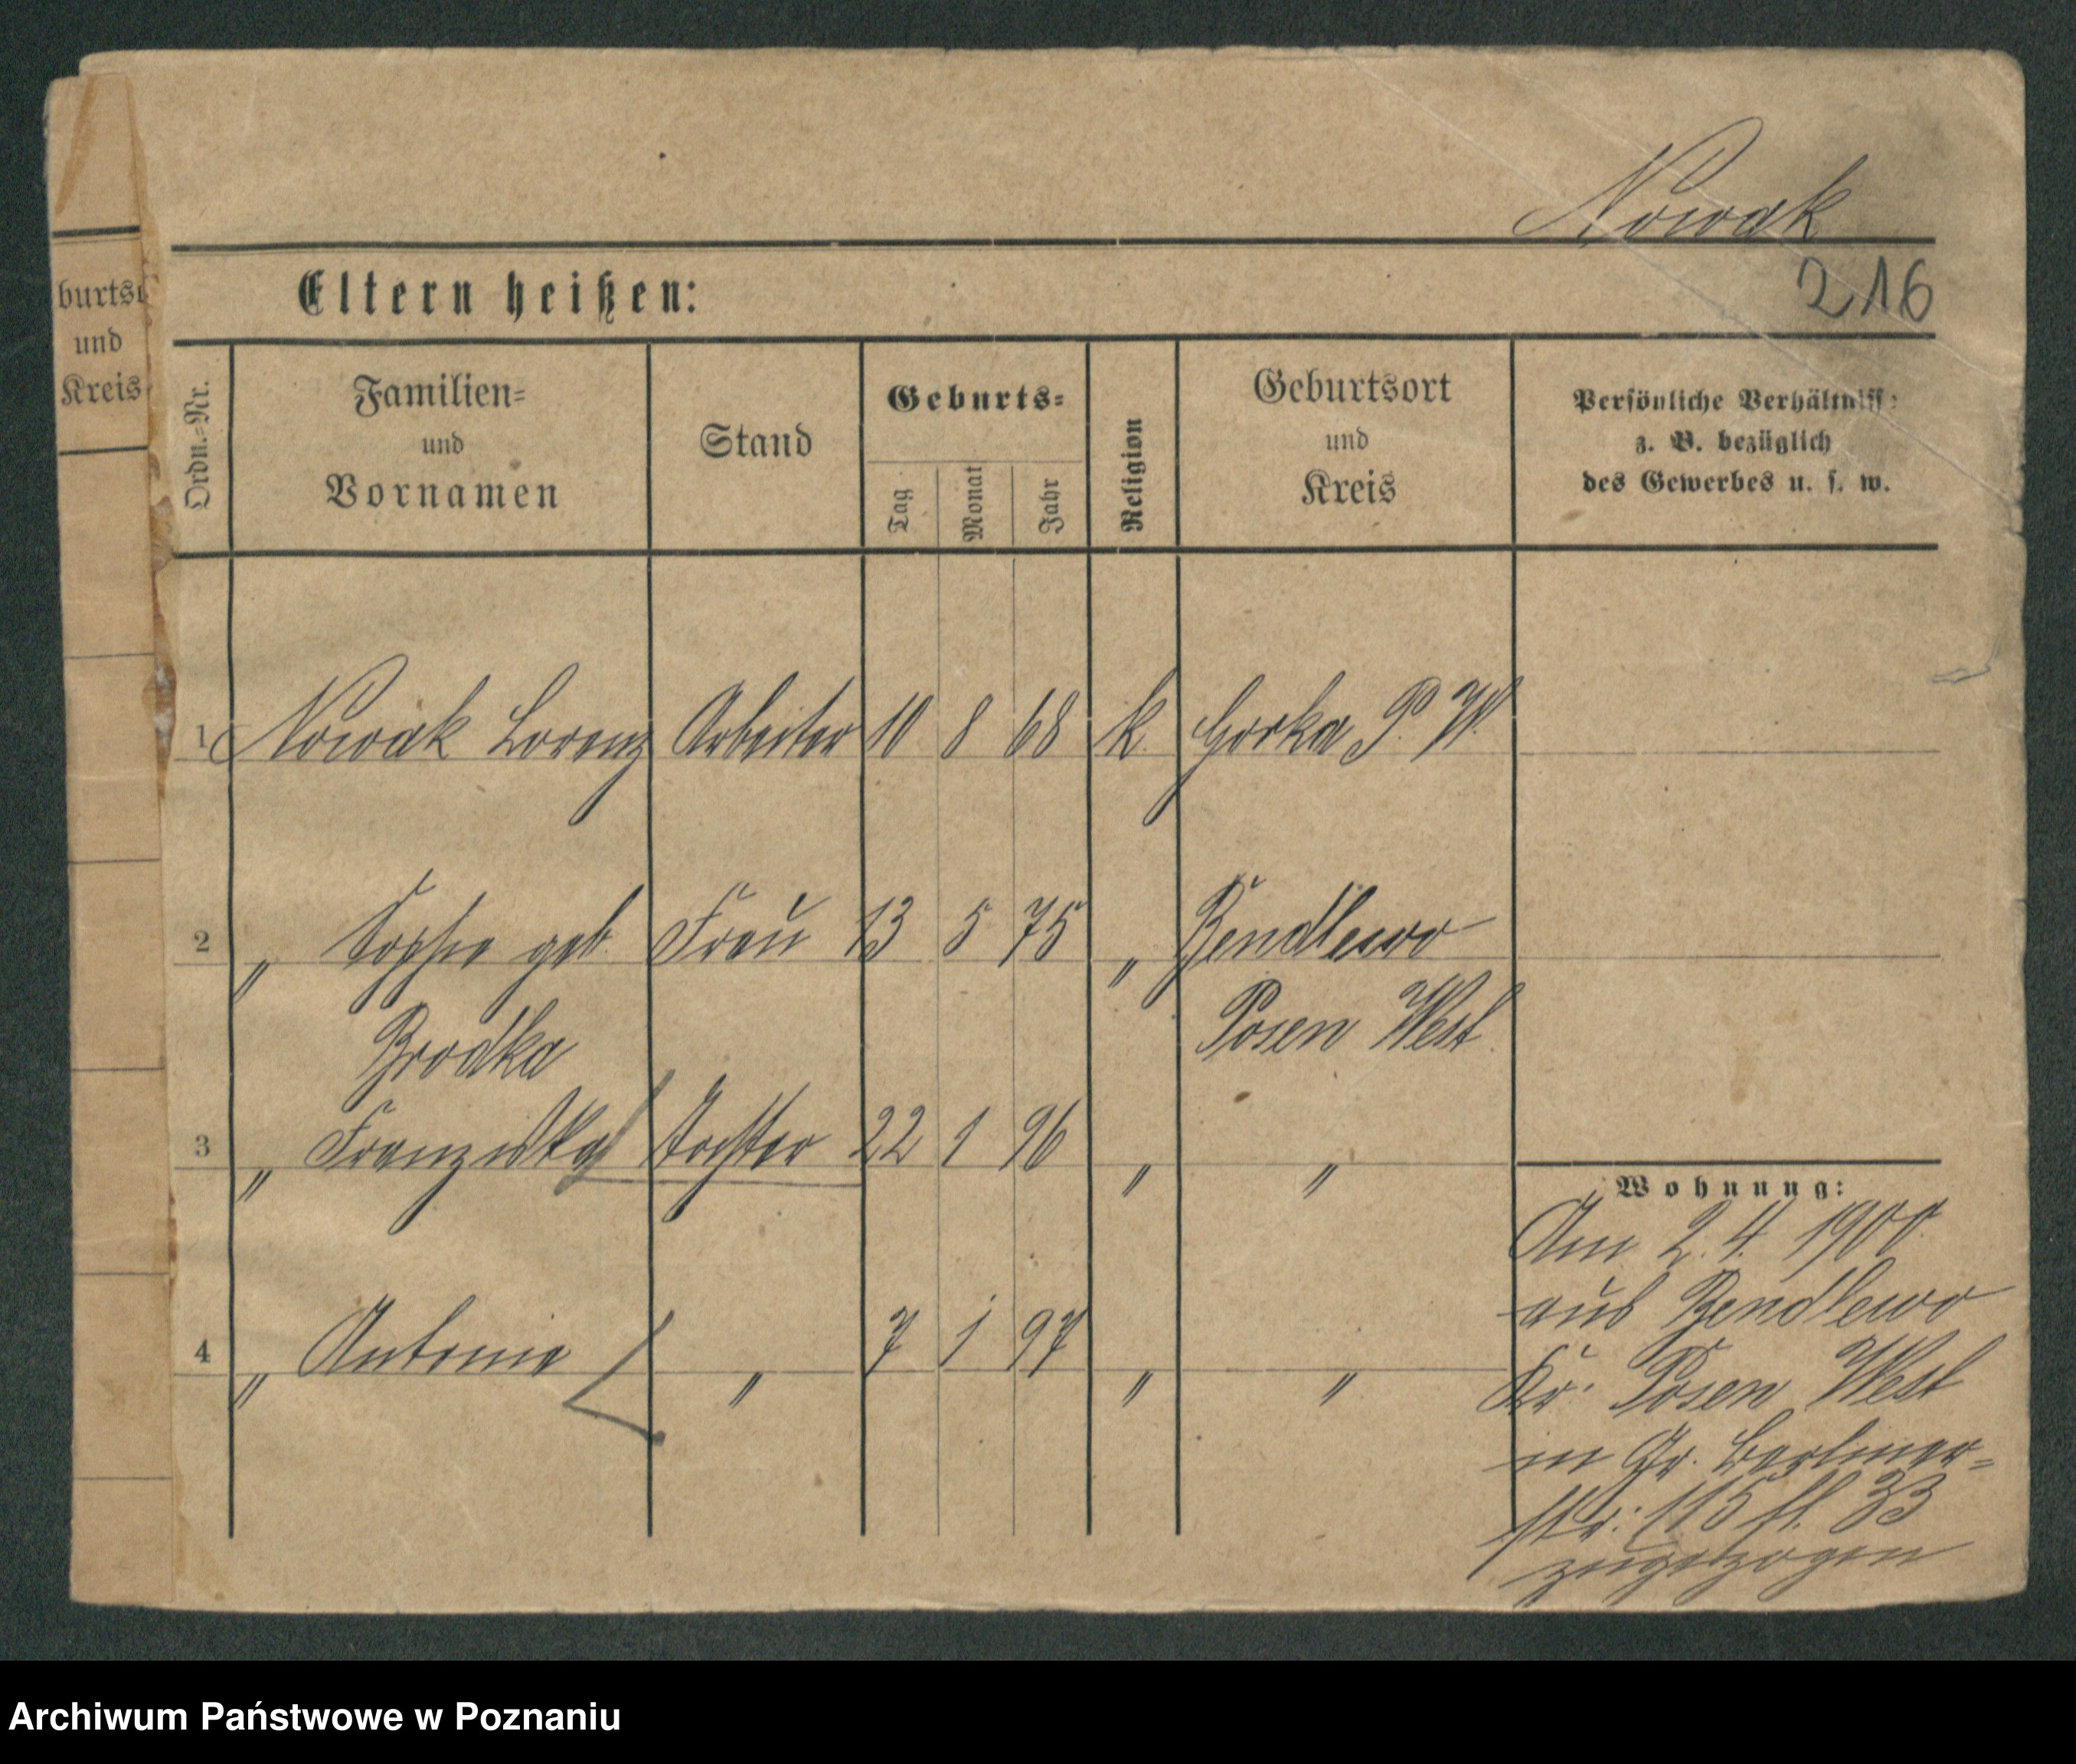 Nowak
216
Eltern heißen:
burtso
und
Kreis
Ordn.-Nr.
Familien-
und
Vornamen
Stand
Geburts-
Tag
Monat
Jahr
Religion
Geburtsort
und
Kreis
Persönliche Verhältnisse
z. B. bezüglich
des Gewerbes u. s. w.
1 Nowak Lorenz Arbeiter 10 8 68 k. Gorka P. W.
2 " Sophie geb. Frau 13 5 75 " Bendlewo
Brodka Posen West
3 " Franziska Tochter 22 1 96 " "
4 " Antonie " 7 1 97 " "
Wohnung:
Am 2. 4. 1900.
aus Bendlewo
Kr. Posen West
in Gr. Berliner-
str. 115 bl. 33
zugezogen
Archiwum Państwowe w Poznaniu